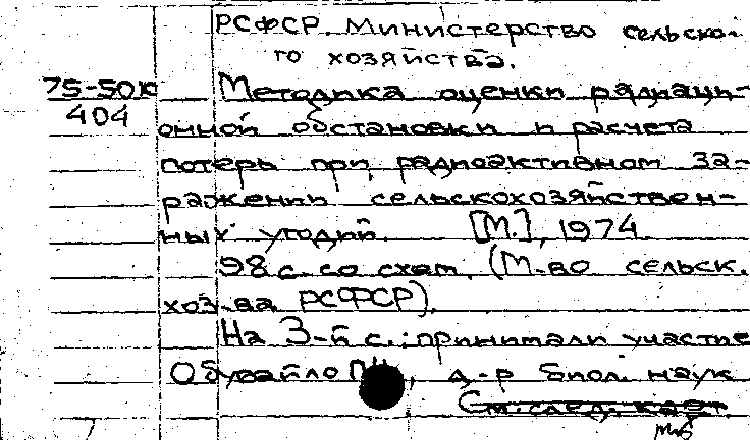 РСФСР. Министерство сельско-
го хозяйства.
75-50к Методика оценки радиаци-
404 онной обстановки и расчета
потерь при радиоактивном за-
ражении сельскохозяйствен-
ных угодий. [М.], 1974
98 с. со схем. (М-во сельск.
хоз-ва РСФСР).
На 3-й с.: принимали участие
, д-р биол. наук
См. след. карт